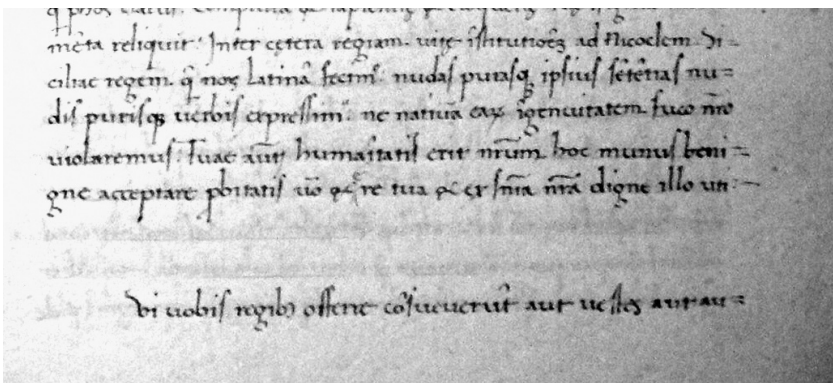 mẽta reliquit. Inter cętera regiam. vitę ĩstitutiõeʒ ad Nicoclem. Si=
ciliae regem. q̃ nos latina fecim⁹. nudas purasq; ipsius sẽtẽtias nu=
dis purisq; verbis expressim⁹. ne nativã eaꝝ ĩgenuitatem fuco nr̃o
violaremus. Tuae aũt humaĩtatis erit nr̃um. hoc munus beni=
gne acceptare ꝓbitatis vo᷉ re tua digne illo uti.
vi vobis regibꝫ offerre cõsueverũt aut vestes aut au=